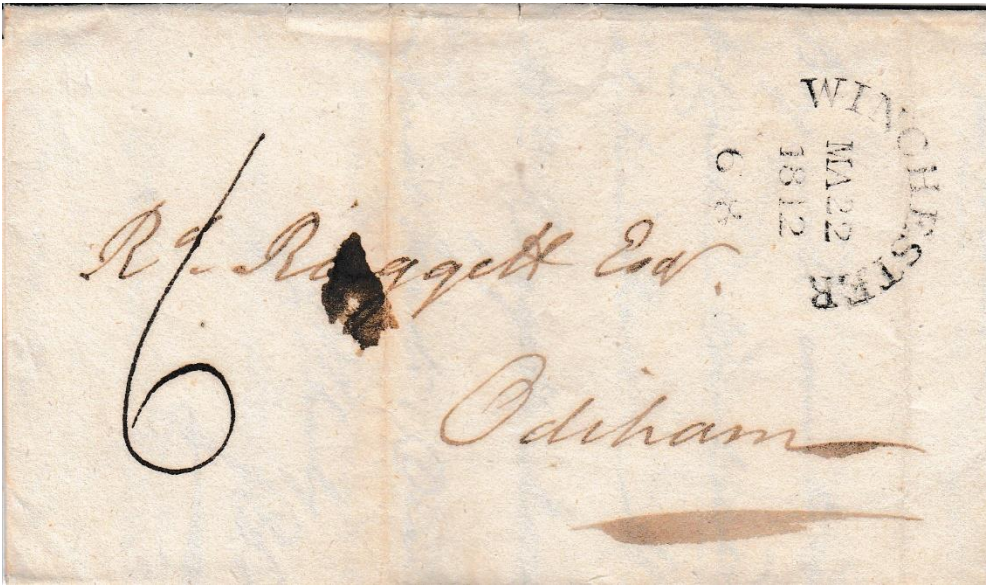 WINCHESTER
MA22
1812
68
6
Rd. Raggett Esqr.
Odiham